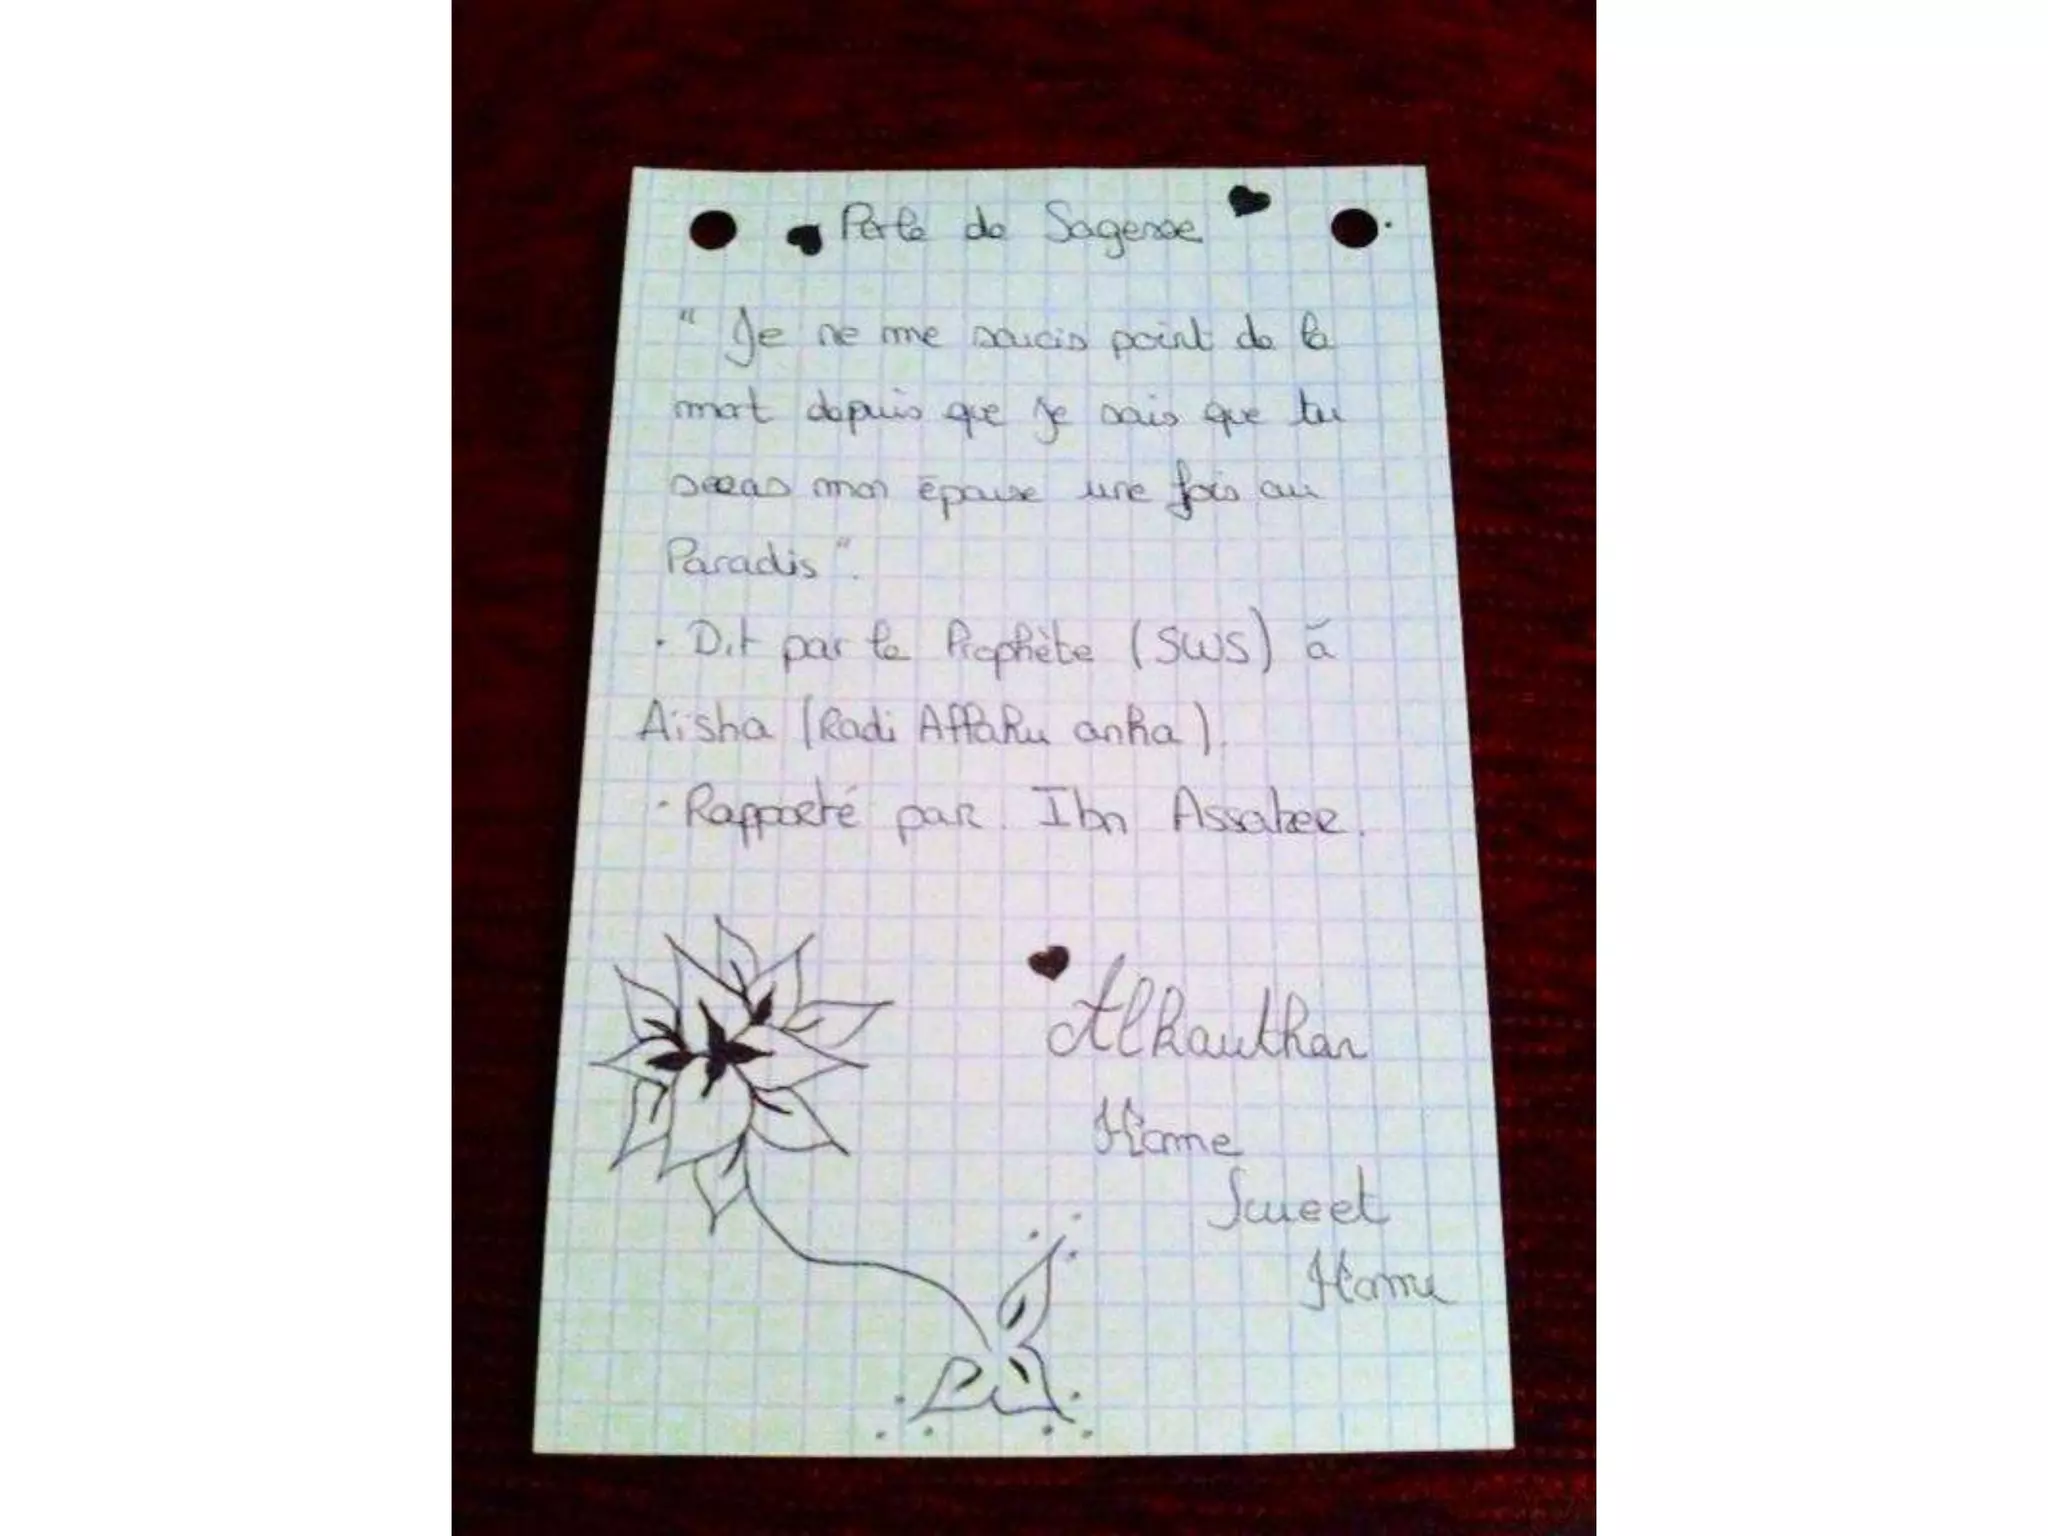 Perle de Sagesse
" Je ne me soucis point de la
mort depuis que je sais que tu
seras mon épouse une fois au
Paradis ".
· Dit par le Prophète (SWS) à
Aïsha (Radi Allahu anha).
· Rapporté par Ibn Assaker.
Alkauthar
Home
Sweet
Home